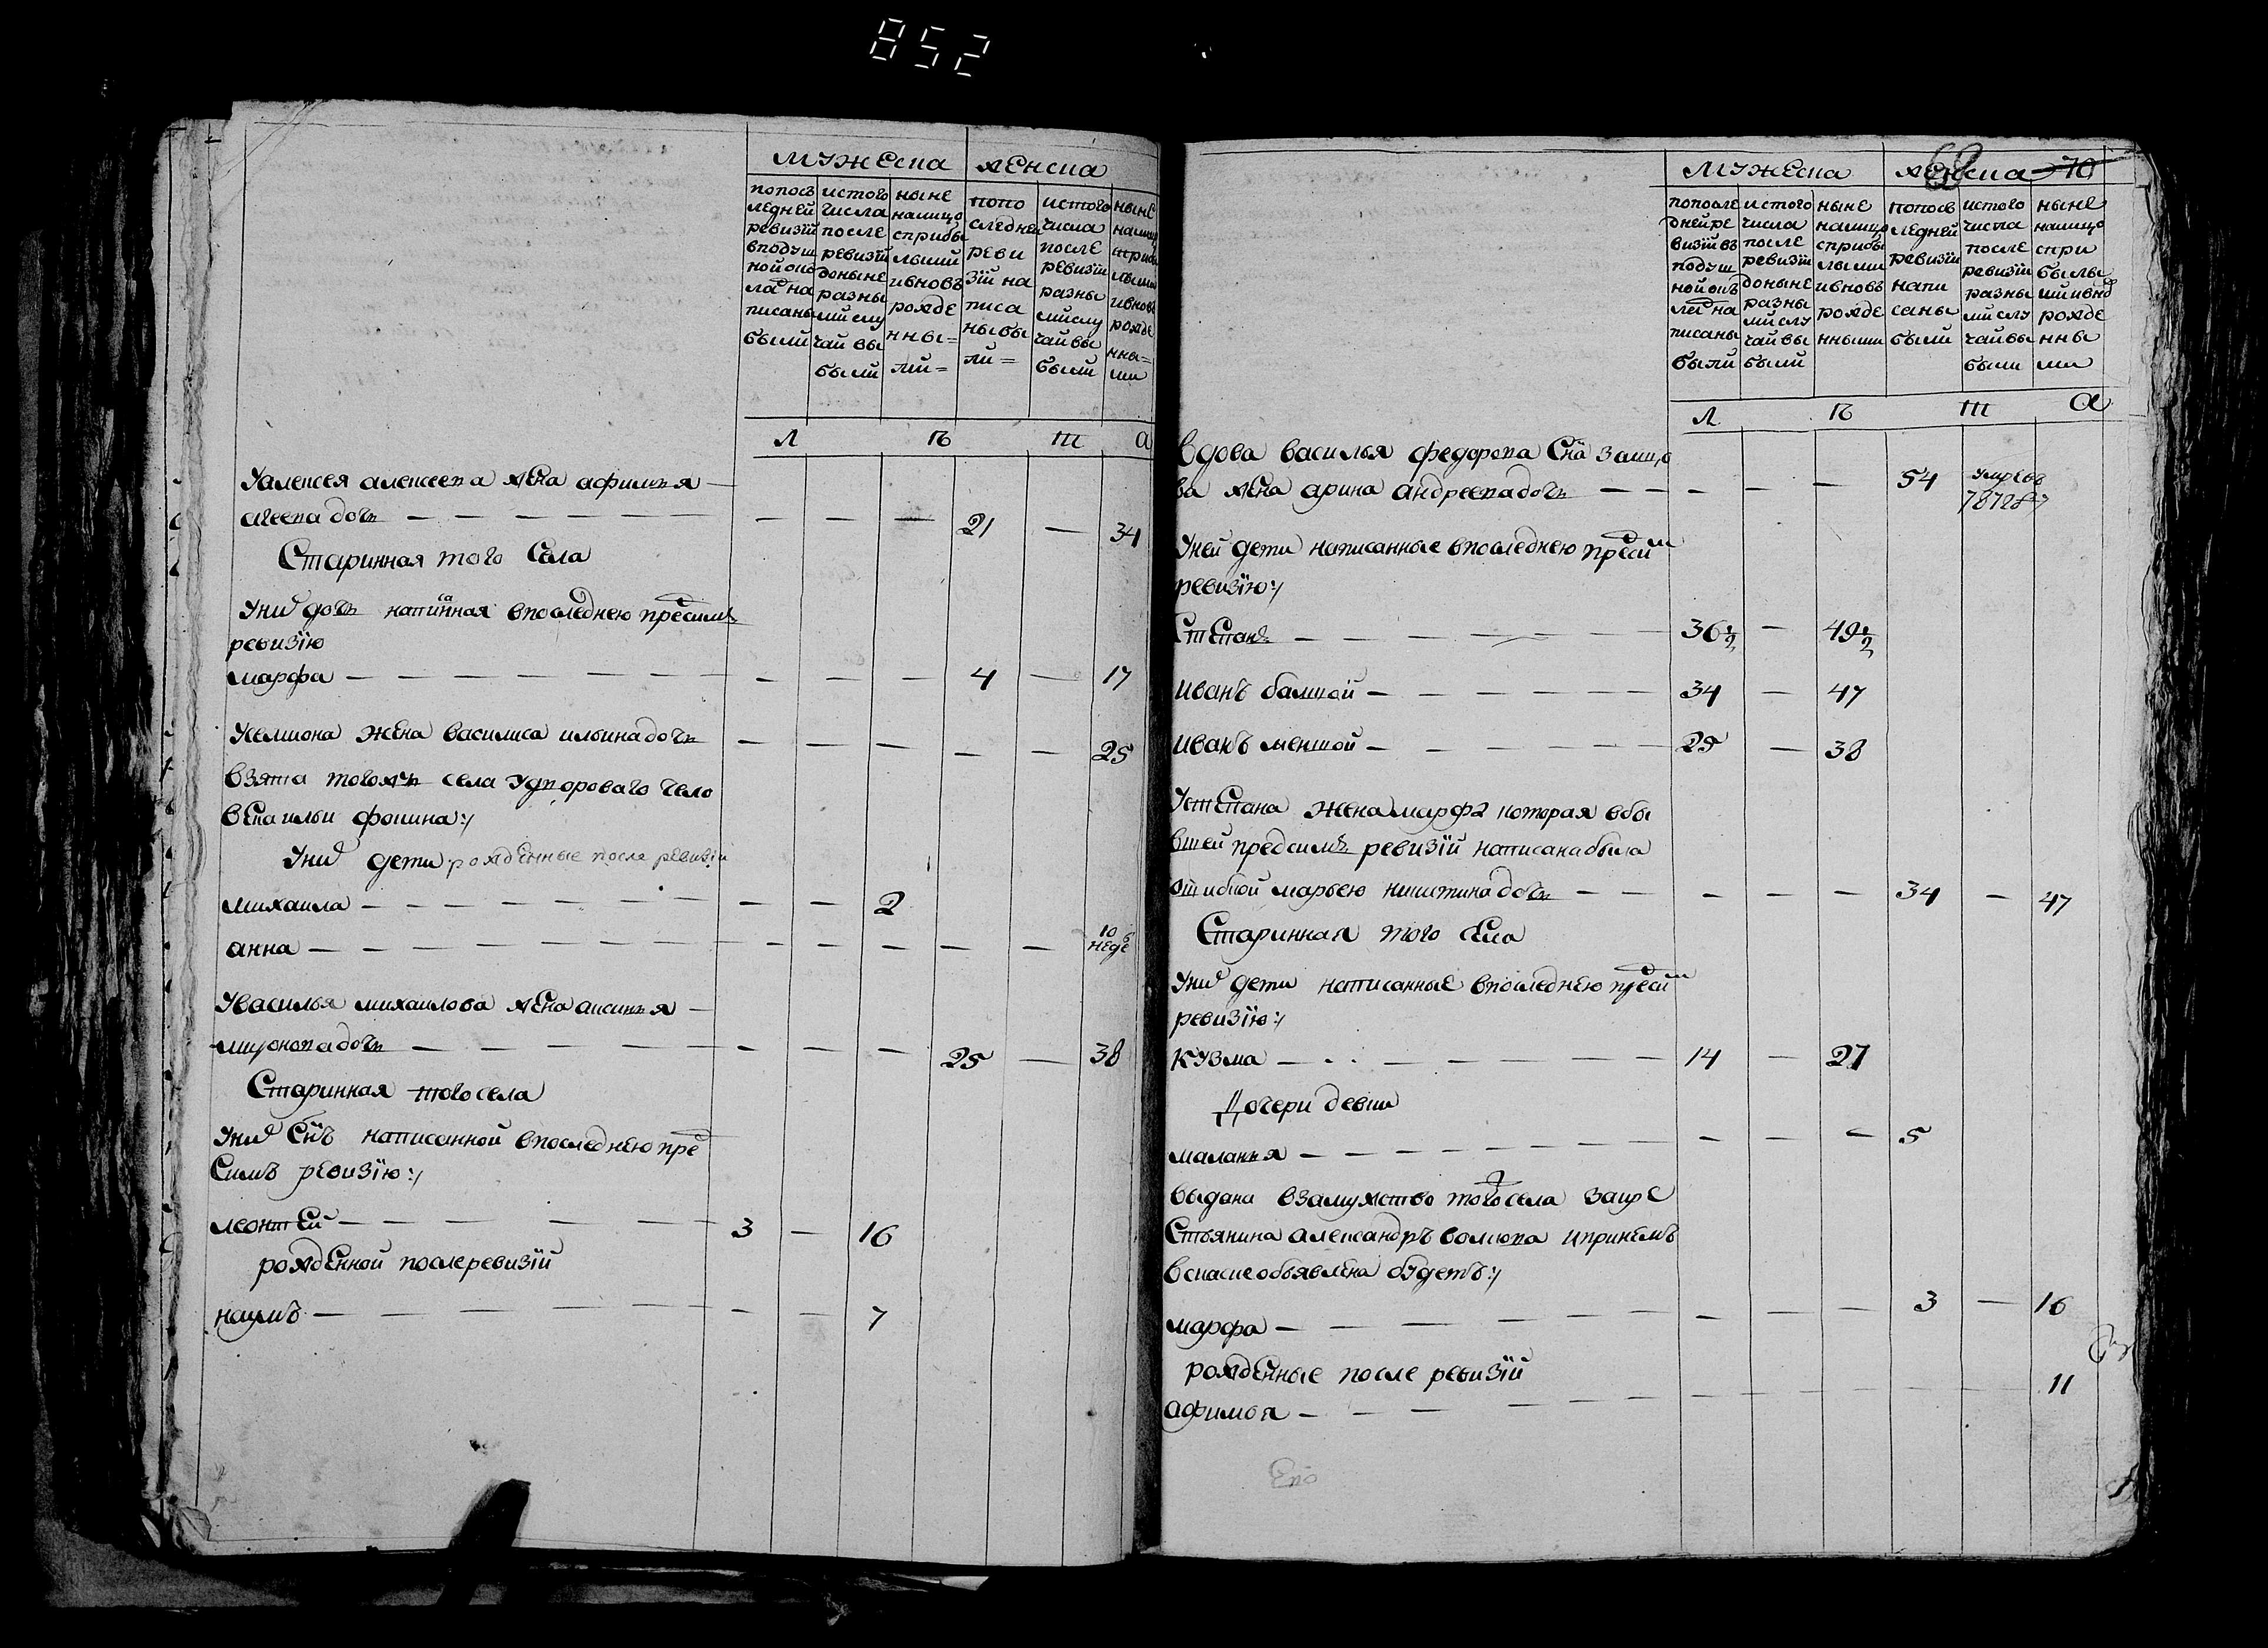 852
мужеска женска
попосъ ледней ревизіи вподуш ной окла ла на писаны были
истого числа после ревизіи доныне разны ми слу чаи вы были
ныне налицо сприбы лыми ивновь рожде нны= ми=
попо следней реви зіи на писа ны бы ли=
истого числа после ревизіи разны ми слу чаи вы были
ныне
л ѣ т а
Уалексея алексеева жена афимья
агеева дочь — — — 21 — 34
Старинная того села
Уних дочь написанная впоследнею пресимъ
ревизію
марфа — — — 4 — 17
жена василиса ильина дочь — — — — — 25
взята тогожъ села удворового чело
века ильи фокина:/
Уних дети рожденные после ревизіи
михаила — — 2
анна — — — — — 10 неде
Увасилья михаилова жена аксинья
миронова дочь — — — 25 — 38
Старинная того села
Уних снъ написанной впоследнею пре
симъ ревизію:/
леонтей 3 — 16
рожденной после ревизіи
наумъ — — 7
68 70
мужеска женска
попосле дней ре визіи въ подуш ной окъ лад на писаны были
истого числа после ревизіи доныне разны ми слу чаи вы были
ныне налицо сприбы лыми ивновь рожде нными
попосъ ледней ревизіи напи саны были
истого числа после ревизіи разны ми слу чаи вы были
ныне налицо спри былы ми ивнов рожде нны ми
л ѣ т а
Вдова василья федорова сна
ва жена арина андреева дочь — — — 54
Уней дети написанные впоследнею пресим
ревизію:/
Степанъ 36½ — 49½
иванъ балшой 34 — 47
иванъ меншой 25 — 38
Устепана жена марфа которая вбы
вшей предсимъ ревизіи написана была
ошибкой марьею никитина дочь — — — 34 — 47
Старинная того села
Уних дети написанные впоследнею преси
ревизію:/
кузма 14 — 27
Дочери девки
маланья — — — 5
выдана взамужство того села за кре
стьянина александръ и при немъ
всписке объявлена будетъ:/
марфа — — — 3 — 16
рожденные после ревизіи
афимья — — — — — 11